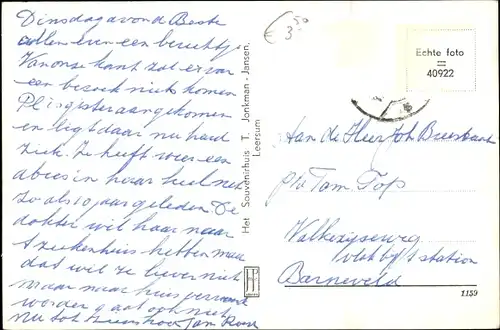 Dinsdagavond Beste
allen even een berichtje
Van onze kant zal er van
een bezoek niets komen
Pl is gister aangekomen
en ligt daar nu hard
ziek. Ze heeft weer een
abces in haar keel net
zo als 10 jaar geleden. De
dokter wil haar naar
't ziekenhuis hebben maar
dat wil ze liever niet
maar naar huis
worden gaat ook niet
nu tot ziens hoor Jan
€ 3,50
Het Souvenirhuis T. Jonkman - Jansen,
Leersum
Echte foto
=
40922
Aan de Heer Joh Breesbaart
p/a Fam. Top
Valkseweg
vlak bij 't station
Barneveld
1159